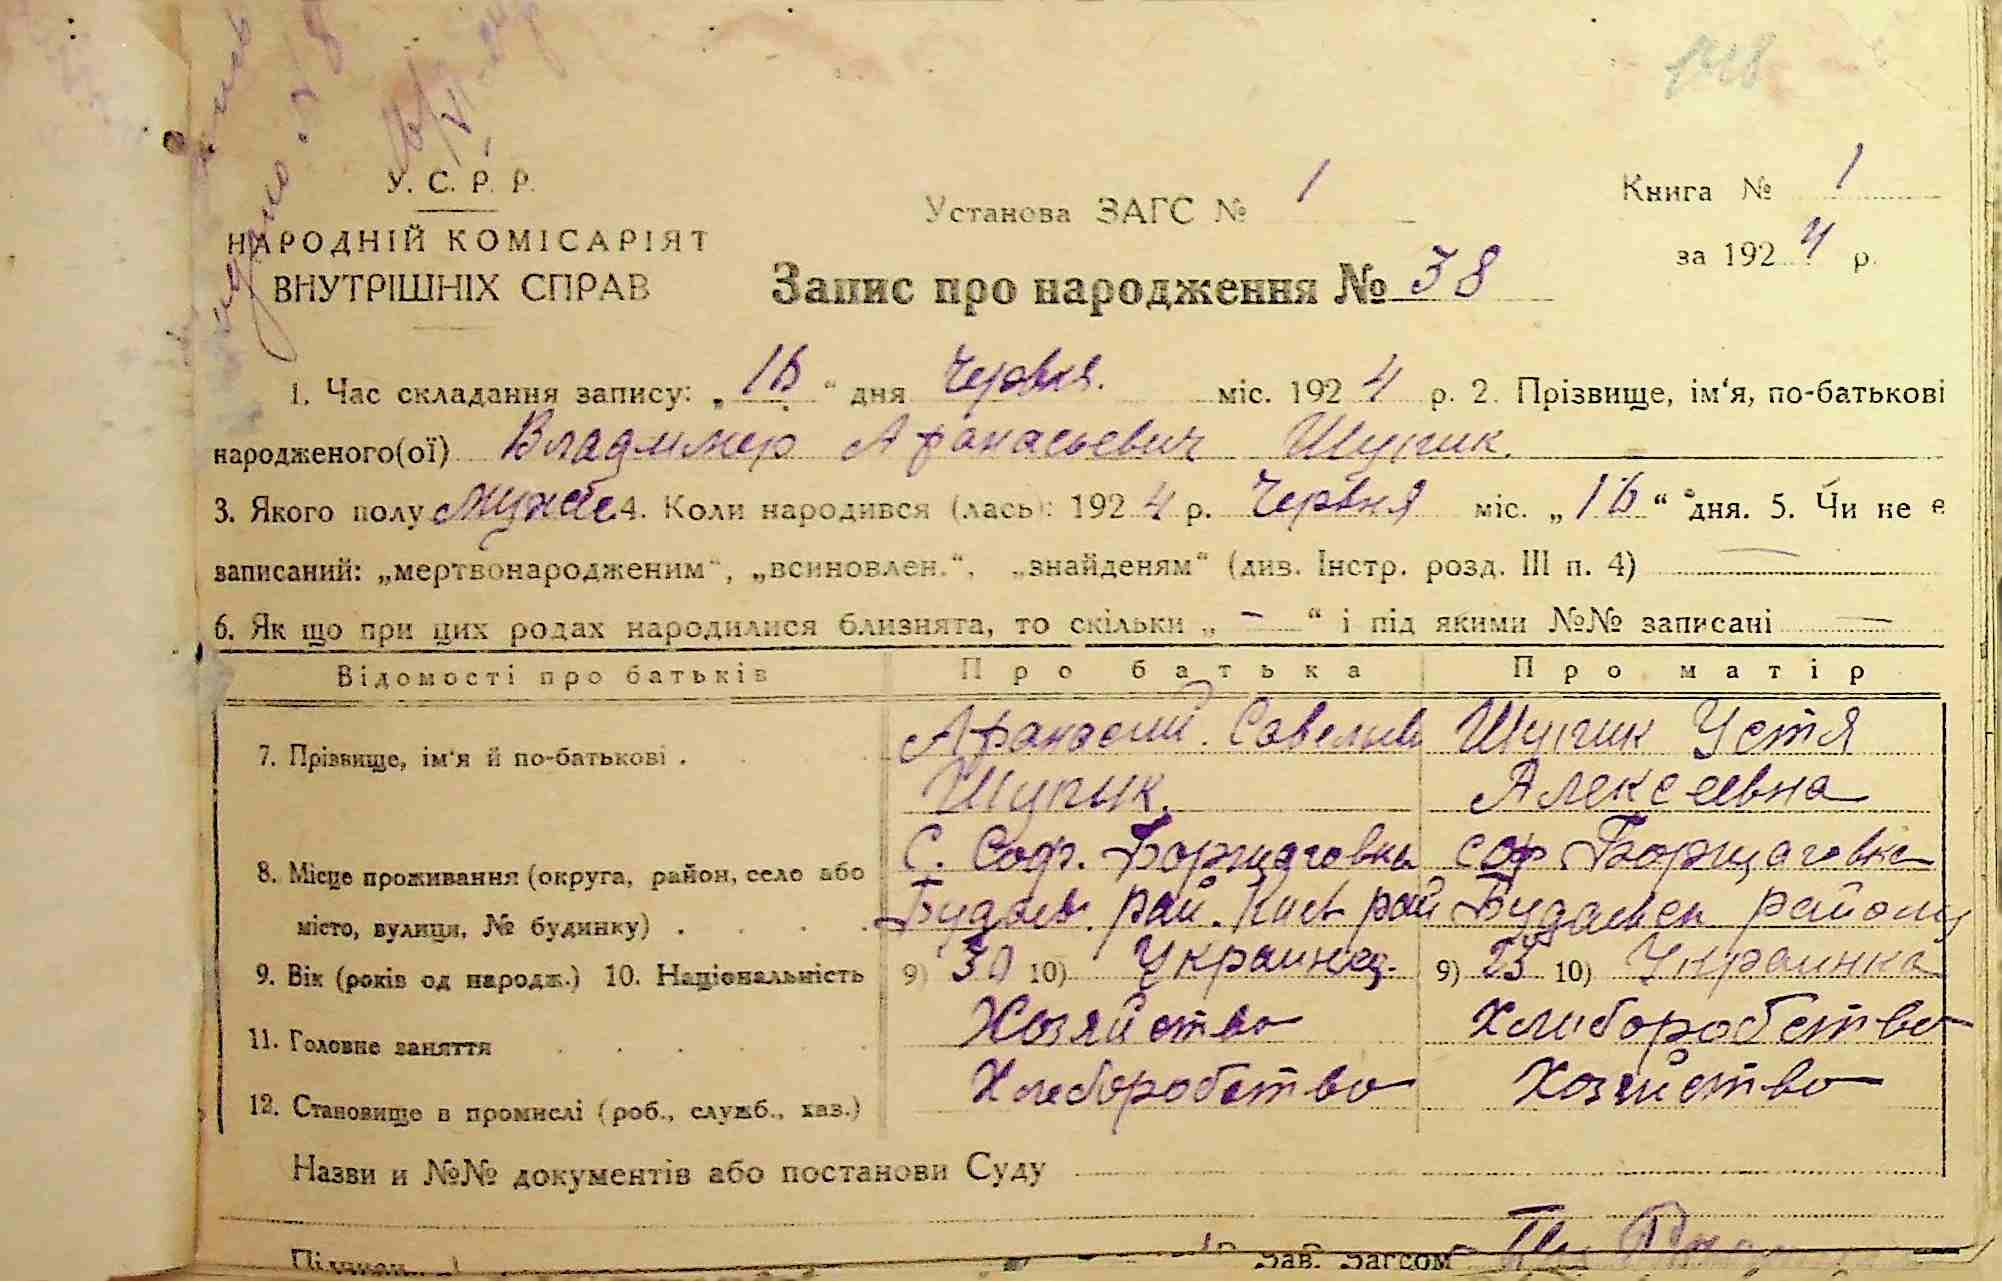 У. С. Р. Р.
НАРОДНІЙ КОМІСАРІЯТ
ВНУТРІШНІХ СПРАВ
Установа ЗАГС № 1
Книга № 1
за 1924 р.
Запис про народження № 38
1. Час складання запису: „16“ дня Червня. міс. 1924 р. 2. Прізвище, ім‘я, по-батькові
народженого(ої) Владимер Афанасьевич Шупик.
3. Якого полу 4. Коли народився (лась): 1924 р. Червня міс. „16“ дня. 5. Чи не є
записаний: „мертвонародженим“, „всиновлен.“, „знайденям“ (див. Інстр. розд. III п. 4) —
6. Як що при цих родах народилися близнята, то скільки „ – “ і під якими №№ записані —
Відомості про батьків Про батька Про матір
7. Прізвище, ім‘я й по-батькові . Афанасий. Савельев Шупик Устя
Шупик. Алексеевна
8. Місце проживання (округа, район, село або С. Соф. Борщаговка соф Борщаговке
місто, вулиця, № будинку) . . . . Будаев. рай. Киев рай Будаевск району
9. Вік (років од народж.) 10. Національність 9) 30 10) Украинец. 9) 25 10) Украинка
11. Головне заняття . . . . . Хозяйство Хлиборобство
12. Становище в промислі (роб., служб., хаз.) Хлеборобство Хозяйство
Назви и №№ документів або постанови Суду
Підписи
Зав. Загсом